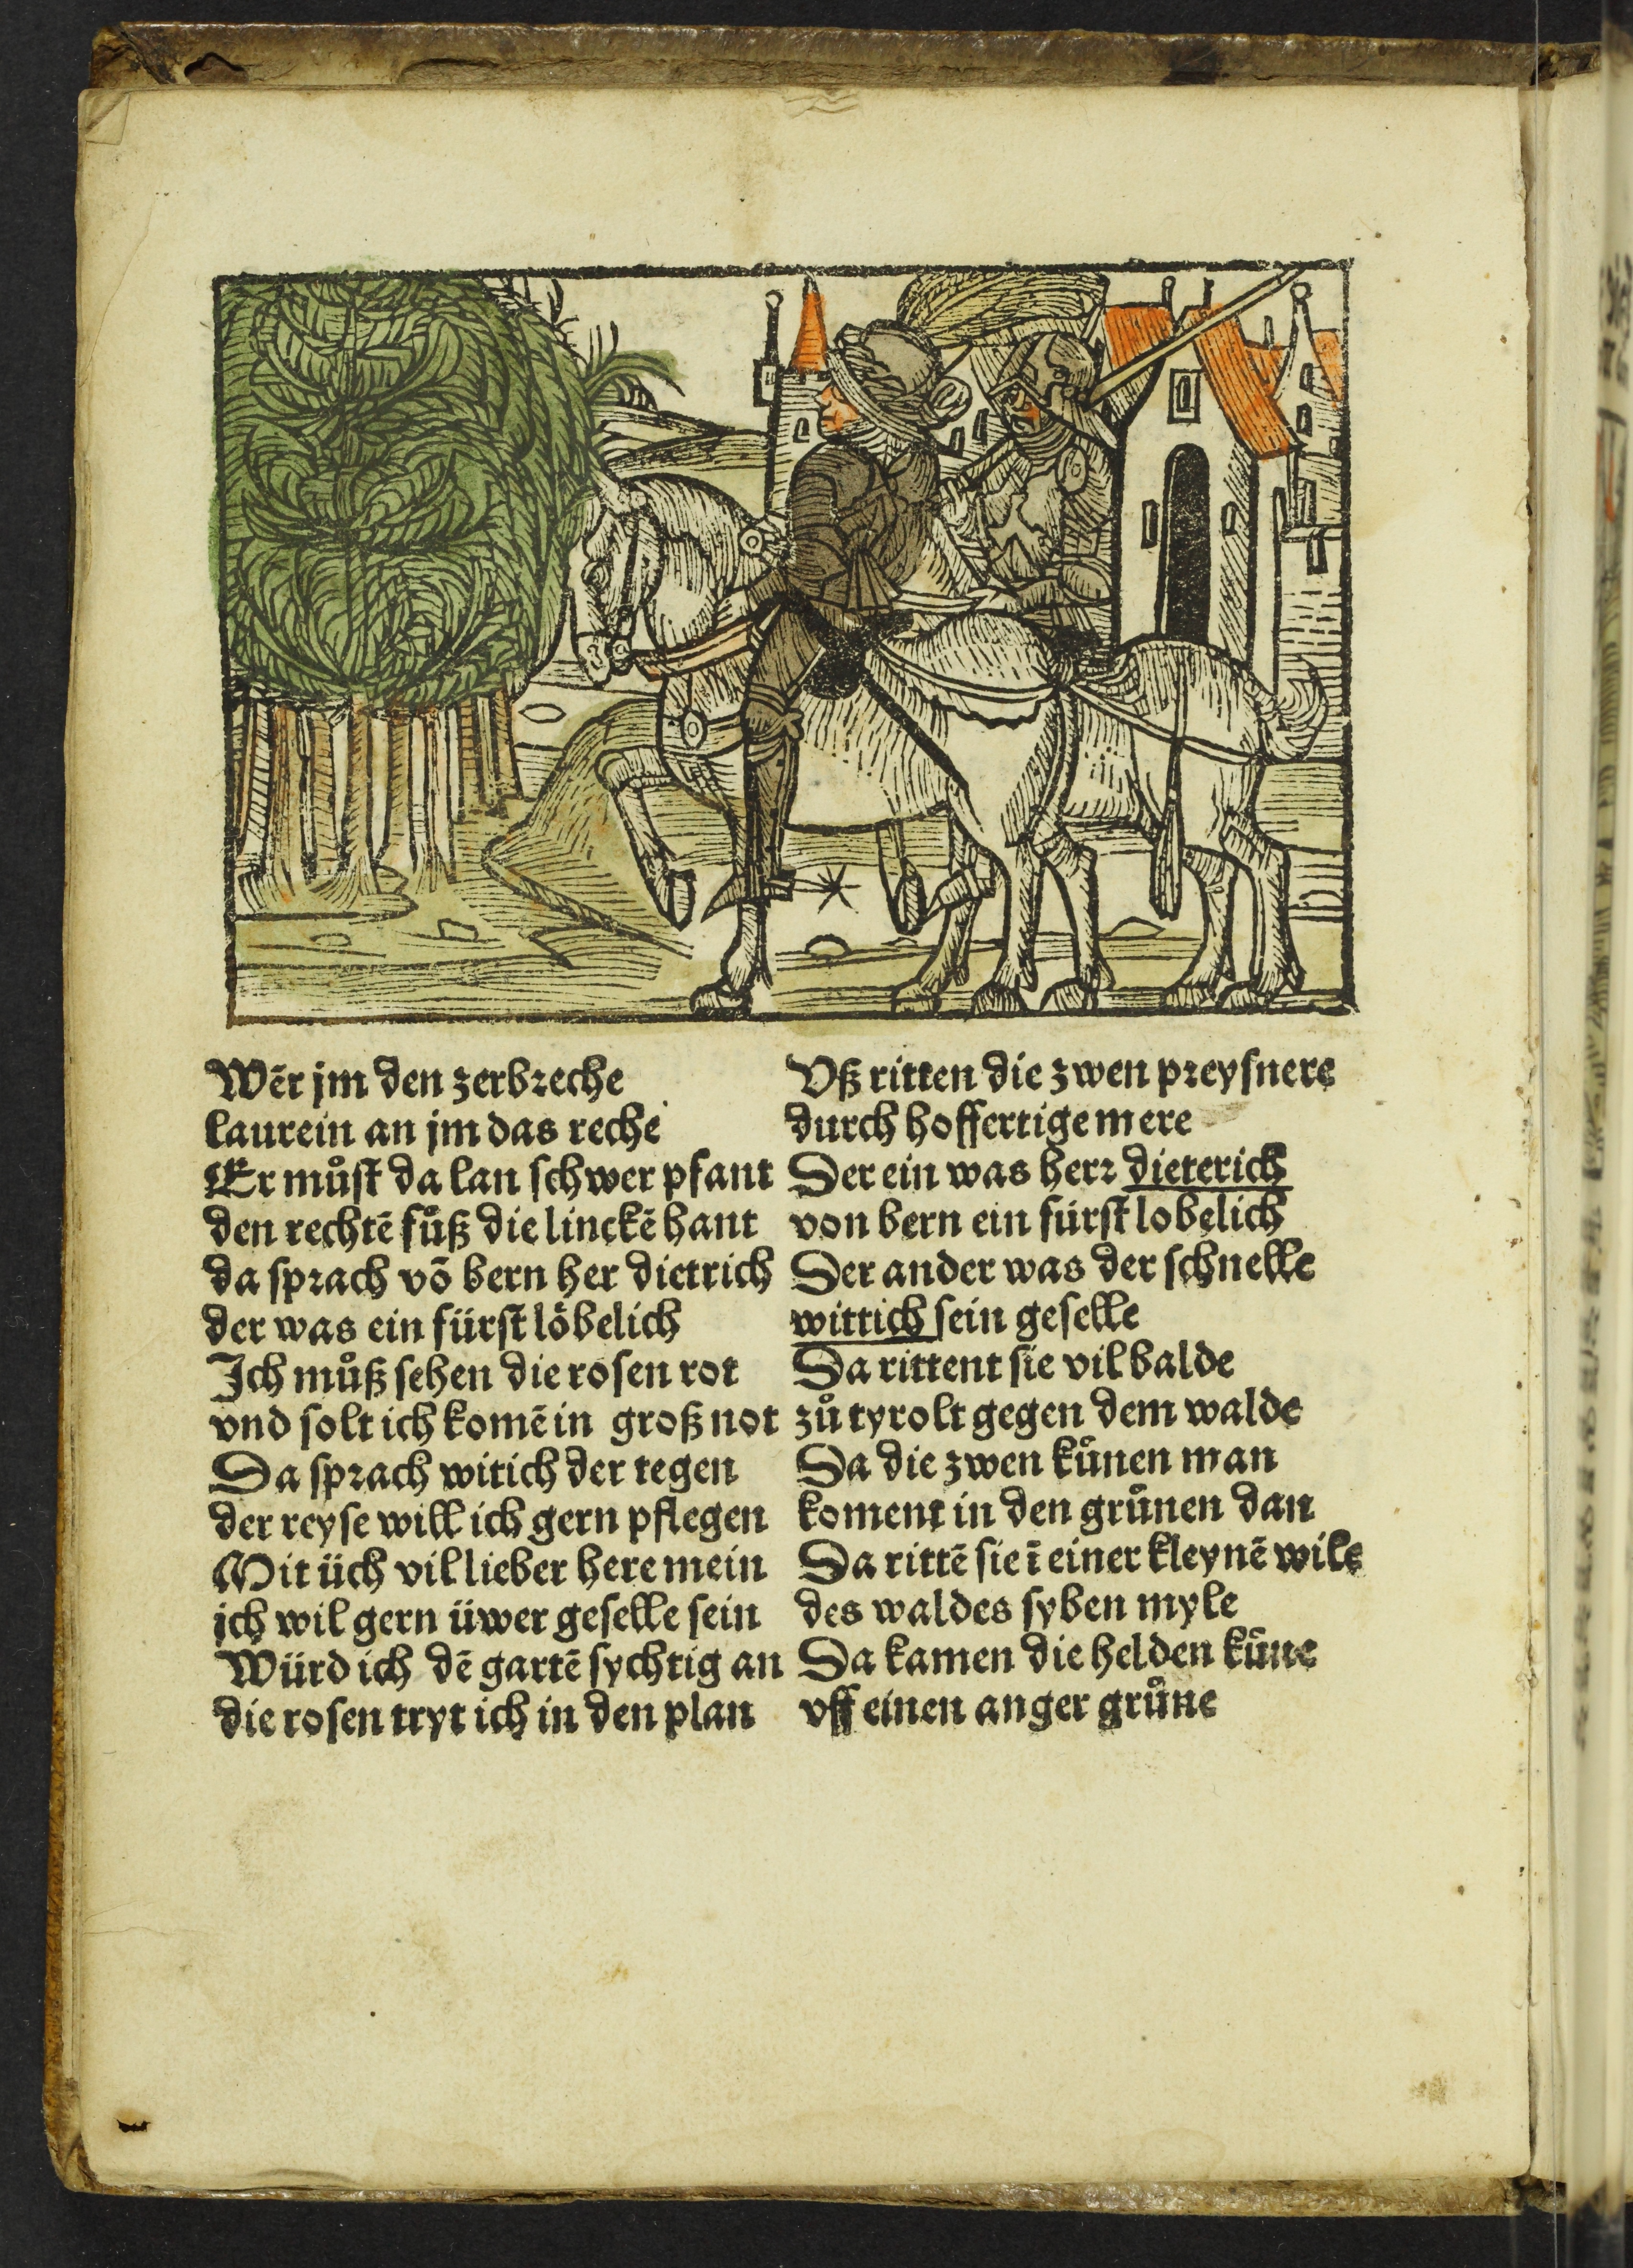 Wēr jm den zerbreche
laurein an jm das reche
Er můſt da lan ſchwer pfant
den rechtē fůß die linckē hant
da ſprach vō bern her dietrich
der was ein fürſt loͤbelich
Ich můß ſehen die roſen rot
vnd ſolt ich komē in groß not
Da ſprach witich der tegen
der reyſe will ich gern pflegen
Mit üch vil lieber here mein
ich wil gern üwer geſelle ſein
Würd ich dē gartē ſychtig an
die roſen tryt ich in den plan
Vß ritten die zwen preyſnere
durch hoffertige mere
Der ein was herr dieterich
von bern ein fürſt lobelich
Der ander was der ſchnelle
wittich ſein geſelle
Da rittent ſie vil balde
zů tyrolt gegen dem walde
Da die zwen kůnen man
koment in den grůnen dan
Da rittē ſie ī einer kleynē wile
des waldes ſyben myle
Da kamen die helden kůne
vff einen anger grůne